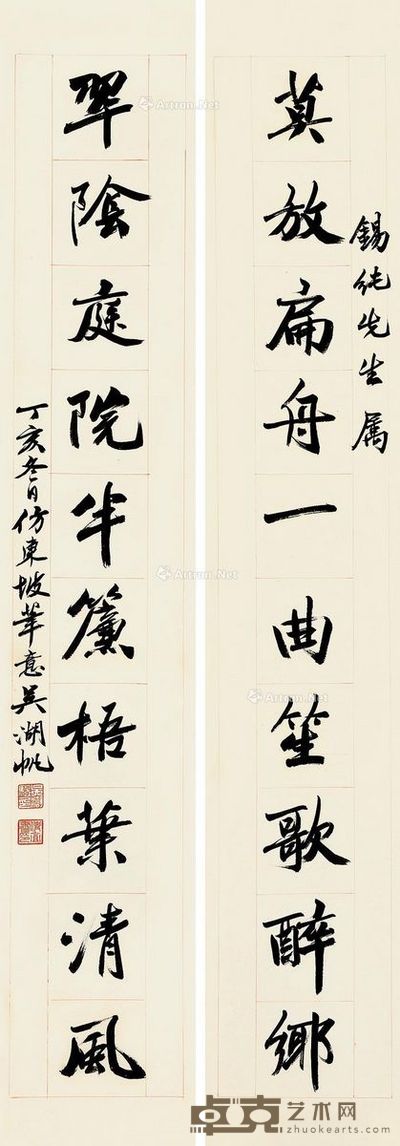 錫純先生属
莫放扁舟一曲笙歌醉鄉
翠陰庭院半簾梧葉清風
丁亥冬日仿東坡筆意吳湖帆
Artron.Net
Artron.Net
Artron.Net
Artron.Net
卓克艺术网
zhuokearts.com